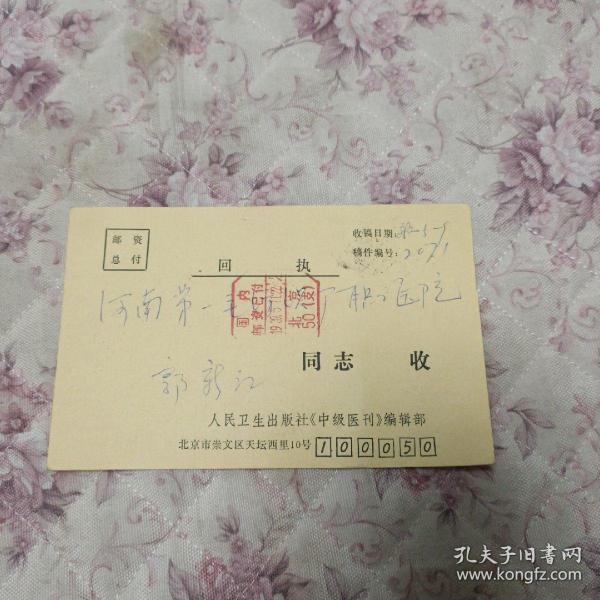 邮资
总付
收稿日期:
稿件编号: 2071
回 执
国内
邮资已付
北京
50(支)
河南第一毛 厂职工医院
郭新江
同志 收
人民卫生出版社《中级医刊》编辑部
北京市崇文区天坛西里10号 100050
孔夫子旧书网
www.kongfz.com